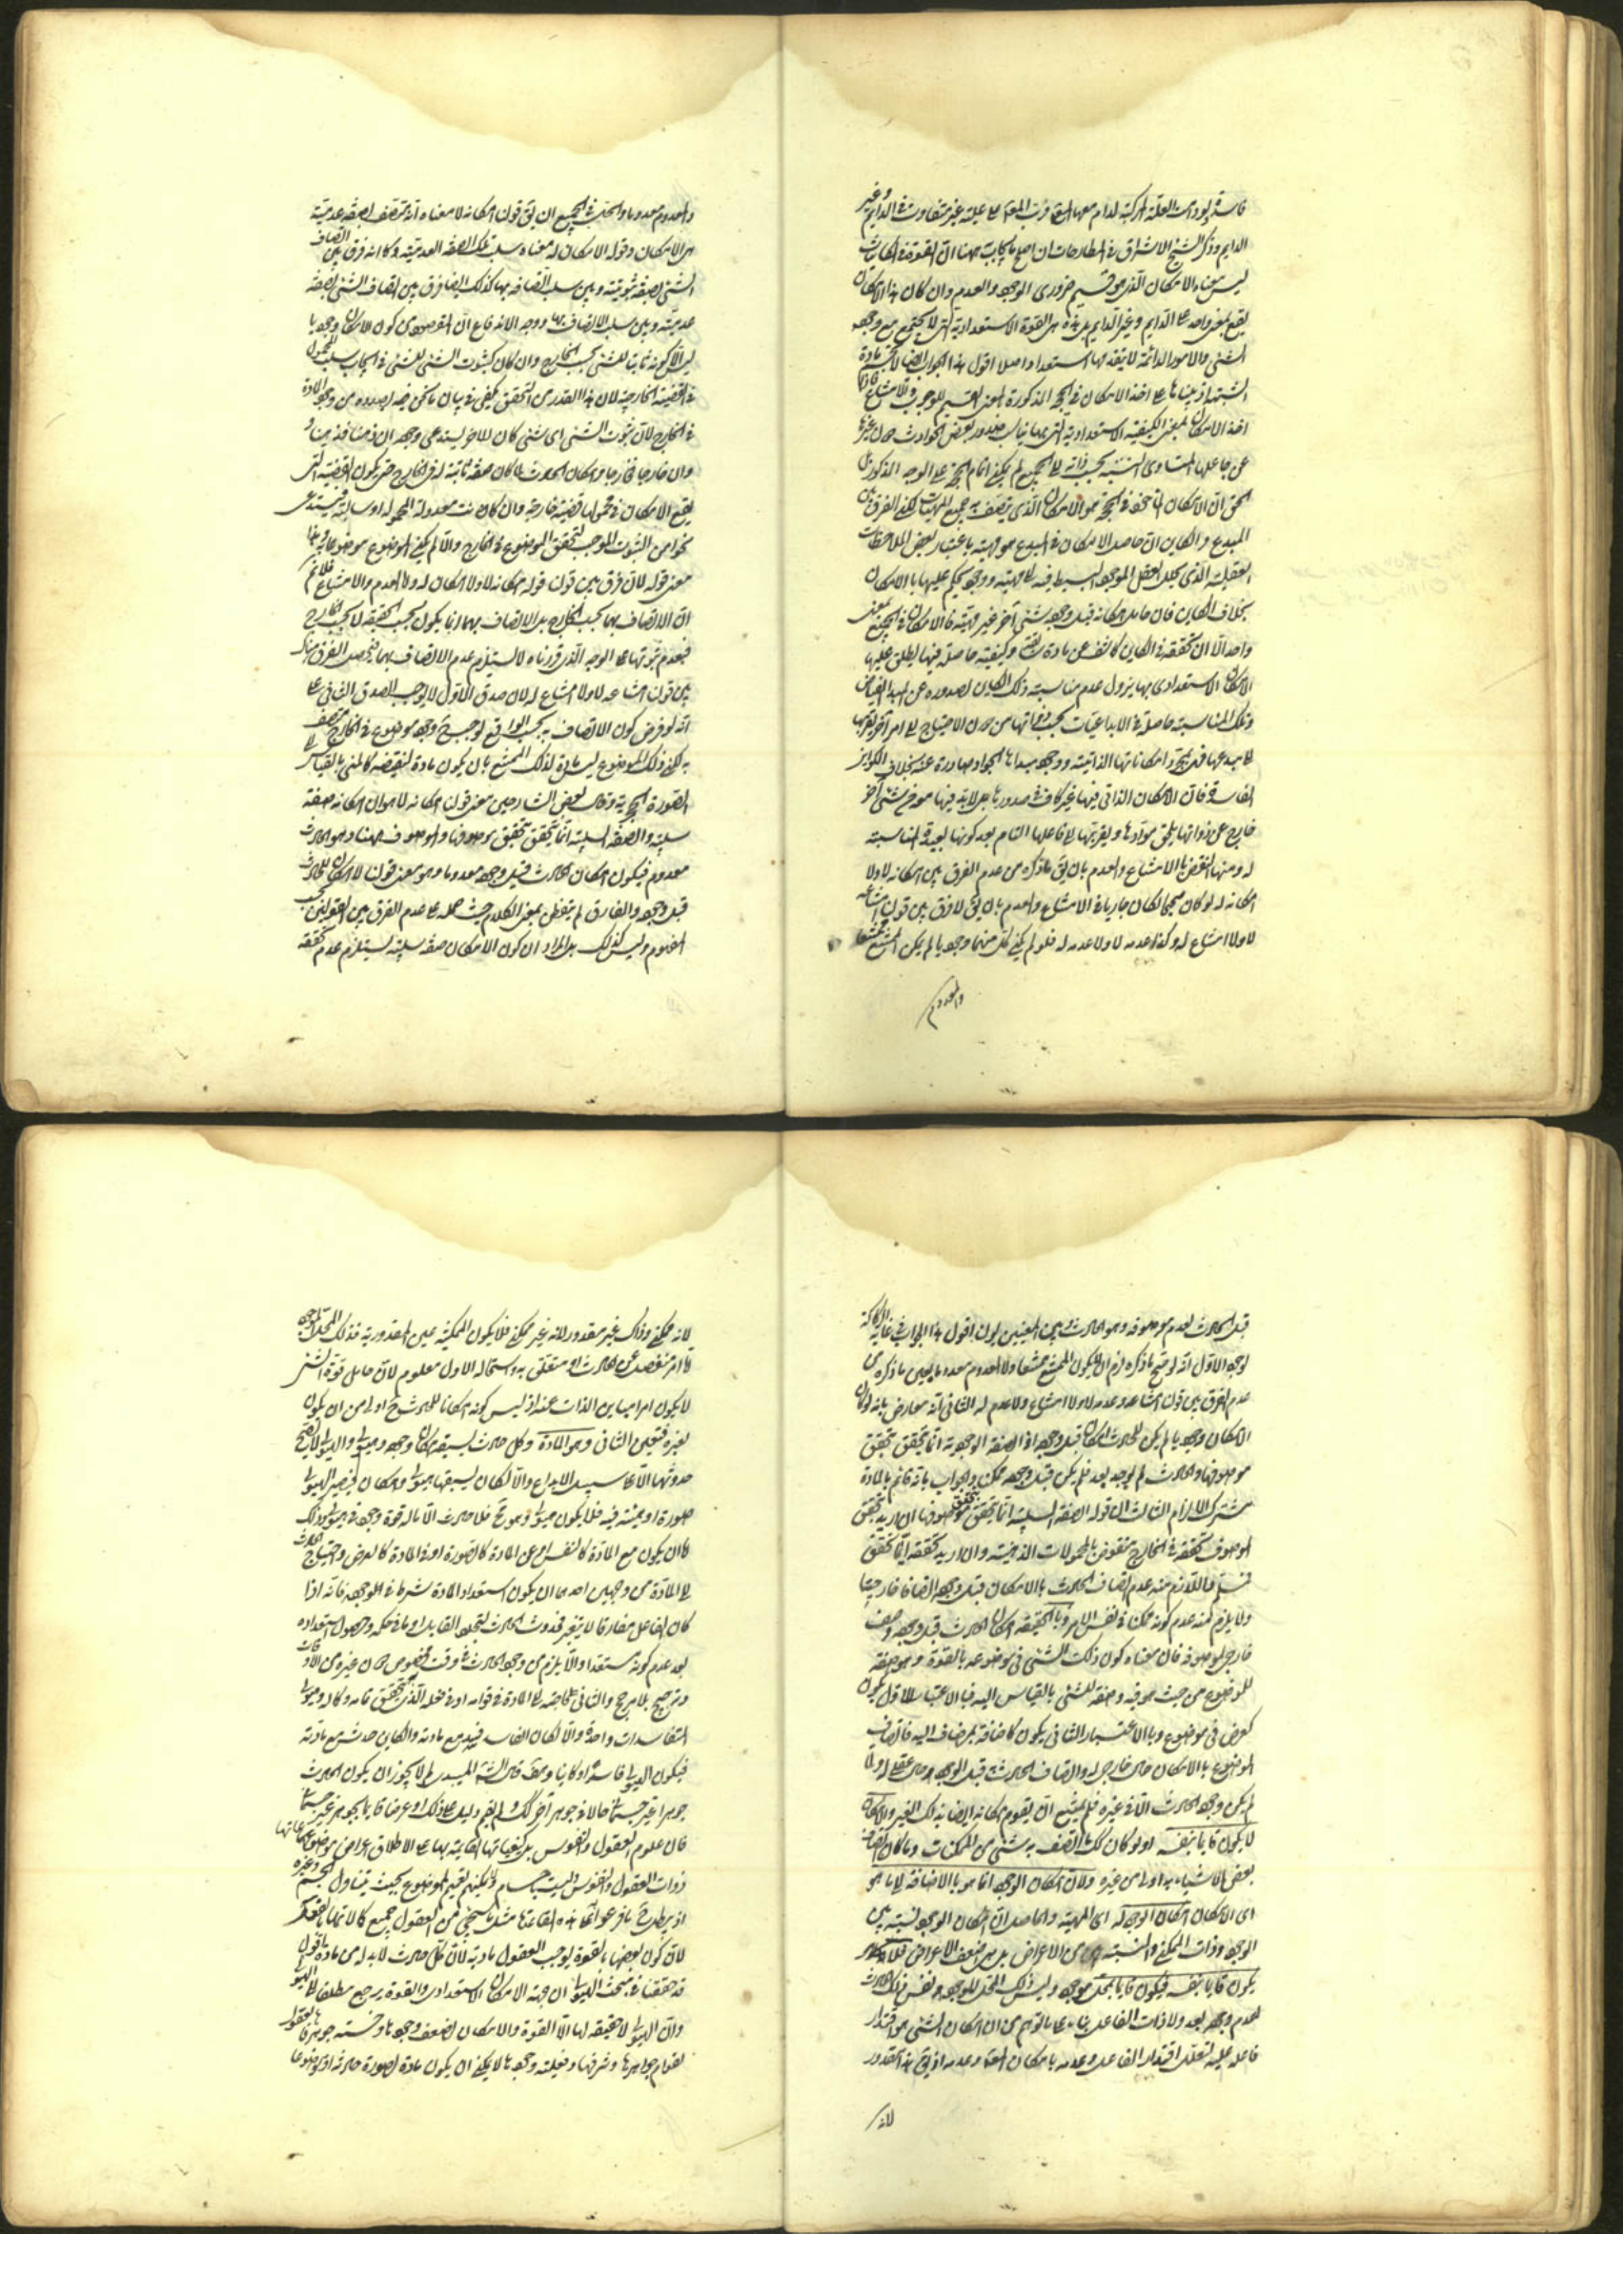 الدايم وذكر الشيخ الاشراق في المطارحات ان اصلح ما يجاب به ههنا ان القوة في الكاينات
ليس معناه الامكان الذي هو قسيم ضروري الوجود والعدم وان كان هذا الامكان
يقع بمعنى واحد على الدايم وغير الدايم بل هذه هي القوة الاستعدادية التي لا يجتمع مع وجود
الشيء والامور الدائمة لا يتقدمها استعداد اصلا اقول هذا الجواب ايضا لا
اخذ الامكان بمعنى الكيفية الاستعدادية التي بها يناسب صدور بعض الحوادث دون غيرها
عن جاعلها المتساوي النسبة بحسب ذاته الى الجميع لم يكن اتمام الحجة على الوجه المذكور بل
الحق ان الامكان الماخوذ في الحجة هو الامكان الذي يتصف به جميع المهيات لكن الفرق بين
المبدع والكاين ان حامل الامكان في المبدع هو مهيته باعتبار بعض الملاحظات
العقلية الذي يحلل العقل الموجود البسيط فيه الى مهية ووجود يحكم عليها بالامكان
بخلاف الكاين فان حامل امكانه قبل وجوده شيء آخر غير مهيته فالامكان في الجميع بمعنى
واحد الا ان تحققه في الكاين كاشف عن مادة سابقة وكيفية حاصلة فيها يطلق عليها
الامكان الاستعدادي بها يزول عدم مناسبة ذلك الكاين لصدوره عن المبدأ الفياض
وتلك المناسبة حاصلة في الابداعيات بحسب ذواتها من دون الاحتياج الى امر آخر يقربها
لمبدعها فبمجرد امكاناتها الذاتية ووجود مبدأها الجواد صادرة عنه بخلاف الكواين
الفاسدة فان الامكان الذاتي فيها غير كاف في صدورها بل لابد فيها من شيء آخر
خارج عن ذواتها يلحق موادها ويقربها الى فاعلها التام بعد كونها بعيدة المناسبة
له ومنها النقض بالامتناع والعدم بان يق ما ذكره من عدم الفرق بين امكانه لا ولا
امكان له لو كان صحيحا لكان جاريا في الامتناع والعدم بان يق لا فرق بين قولنا امتناعه
لا ولا امتناع له وكذا عدمه لا ولا عدم له فلو لم يكن كل منهما وجوديا لم يكن الممتنع ممتنعا
والمعدوم
والمعدوم معدوما والحق في الجميع ان يق قولنا امكانه لا معناه انه متصف بصفة عدمية
هي الامكان وقوله لا امكان له معناه سلب تلك الصفة العدمية وكما انه فرق بين اتصاف
الشيء بصفة ثبوتية وبين سلب اتصافه بها كذلك ايضا فرق بين اتصاف الشيء بصفة
عدمية وبين سلب الاتصاف بها
في القضية الخارجية لان هذا القدر من التحقق يكفي في بيان ما نحن فيه بصدده من وجود المادة
في الخارج لان ثبوت الشيء اي شيء كان للاخر يستدعي وجوده ان ذهنا فذهنا و
وان خارجا فخارجا وامكان الحدوث لما كان صفة ثابتة له في الخارج حتى يكون القضية التي
يقع الامكان في محمولها قضية خارجية وان كانت معدولة المحمول او سالبة فيستدعي
نحوا من الثبوت الموجب لتحقق الموضوع في الخارج والا لم يكن الموضوع موضوعا وهذا
معنى قوله لا فرق بين قولنا امكانه لا ولا امكان له واما العدم والامتناع فلا نم
ان الاتصاف بهما بحسب الخارج بل الاتصاف بهما انما يكون بحسب الحقيقة لا بحسب الخارج
فبعدم ثبوتها على الوجه الذي قررناه لا يستلزم عدم الاتصاف بهما فيحصل الفرق هناك
بين قولنا امتناعه لا ولا امتناع له لان صدق الاول لا يوجب الصدق الثاني على
انه لو فرض كون الاتصاف به بحسب الواقع لوجب وجود موضوع في الخارج متصف
الصورة الجسمية وقال بعض الشارحين معنى قولنا امكانه لا هو ان امكانه صفة
سلبية والصفة السلبية انما تتحقق بتحقق موصوفها والموصوف ههنا وهو الحادث
معدوم فيكون امكان الحادث قبل وجوده معدوما وهو معنى قولنا لا امكان للحادث
قبل وجوده والفارق لم يتفطن بمعنى الكلام حيث حمله على عدم الفرق بين القولين بحسب
المفهوم وليس كذلك بل المراد ان كون الامكان صفة سلبية يستلزم عدم تحققه
قبل الحادث لعدم موصوفه وهو الحادث اقول هذا الجواب في غاية الركاكة
لوجوه الاول انه لو صح ما ذكره لزم ان لا يكون الممتنع ممتنعا ولا المعدوم معدوما بعين ما ذكره من
عدم الفرق بين قولنا امتناعه وعدمه لا ولا امتناع ولا عدم له الثاني انه معارض بانه لو كان
الامكان وجوديا لم يكن للحادث امكان قبل وجوده اذ الصفة الوجودية انما تتحقق بتحقق
موصوفها والحادث لم يوجد بعد فلم يكن قبل وجوده ممكنا والجواب بانه قائم بالمادة
مشترك الالزام الثالث ان قوله الصفة السلبية انما يتحقق بتحقق موصوفها ان اريد بتحقق
الموصوف تحققه في الخارج منقوض بالمحمولات الذهنية وان اريد تحققه
ولا يلزم منه عدم كونه ممكنا في نفس الامر وبالحقيقة امكان الحادث قبل وجوده وصف
خارجي لموصوفه فان معناه كون ذلك الشيء في موضوعه بالقوة وهو صفة
للموضوع من حيث هو فيه وصفة للشيء بالقياس اليه فبالاعتبار الاول يكون
كعرض في موضوع وبالاعتبار الثاني يكون كاضافة لمضاف اليه فاتصاف
الموضوع بالامكان حال خارجي له واتصاف الحادث به قبل الوجود حال عقلي له ولما
لم يكن وجود الحادث الا في غيره فلم يمتنع ان يقوم امكانه ايضا بذلك الغير والامكان
لا يكون قايما بنفسه اذ لو كان كك لما اتصف به شيء من الممكنات وما كان اتصاف
بعض الاشياء به اولى من غيره ولان امكان الوجود انما هو بالاضافة الى ما هو
اي الامكان امكان الوجود له اي المهية والحاصل ان امكان الوجود نسبة بين
الوجود وذات الممكن والنسبة من الاعراض بل من اضعف الاعراض فلا
يكون قايما بنفسه فيكون قايما بمحل موجود وليس ذلك المحل للوجود ونفس ذلك الحادث
لعدم وجوده بعد ولا ذات الفاعل بناء على ما توهم من ان امكان الشيء هو اقتدار
فاعله عليه لتعلل اقتدار الفاعل وعدمه بامكان الشيء وعدمه اذ يق هذا مقدور
لانه
لانه ممكن وذاك غير مقدور لانه غير ممكن فلا يكون الممكنية عين المقدورية فذلك المحل الموجود
اما امر منفصل عن الحادث او متعلق به واستحالة الاول معلوم لان حامل قوة الشيء
لا يكون امرا مباين الذات عنه اذ ليس كونه امكانا للحادث ح اولى من ان يكون
لغيره فتعين الثاني وهو المادة وكل حادث يسبقه امكان وجود وهيولى والهيولى لا يصح
حدوثها الا على سبيل الابداع والا لكان يسبقها هيولى وامكان فيصير الهيولى
صورة او هيئة فيه فلا يكون هيولى وهو مح فلا حادث الا ما له قوة وجود في هيولى وذلك
اما ان يكون مع المادة كالنفس او عن المادة كالصورة او في المادة كالعرض واحتياج الحادث
الى المادة من وجهين احدهما ان يكون استعداد المادة شرطا في الوجود فانه اذا
كان الفاعل مفارقا لا يتغير فحدوث الحادث لتعلق القابل او ما في حكمه وحصول استعداده
بعد عدم كونه مستعدا والا يلزم من وجود الحادث في وقت مخصوص دون غيره من الاوقات
ترجيح بلا مرجح والثاني حاجته الى المادة في قوامه او في فعله الذي يتحقق تمامه وكماله وهيولى
المتفاسدات واحدة والا لكان الفاسد فسد مع مادته والكاين حدث مع مادته
فيكون الهيولى فاسدة او كاينة وهو مح قال السيد لم لا يجوز ان يكون الحادث
جوهرا غير جسماني حالا في جوهر آخر كك ولم يقم دليل على ذلك او عرضا قايما بجوهر غير جسماني
فان علوم العقول والنفوس بل كيفياتها القايمة بها على الاطلاق اعراض موضوعاتها
ذوات العقول والنفوس وليست باجسام ولا يمكنهم تعميم الموضوع بحيث يتناول الجسم وغيره
لان كون بعضها بالقوة يوجب العقول مادية لان كل حادث لابد له من مادة اقول
قد حققنا في مبحث الهيولى ان جهة الامكان الاستعدادي والقوة يرجع مطلقا الى الهيولى
وان الهيولى لا حقيقة لها الا القوة والامكان لضعف وجودها وخسة جوهرها والعقول
لقوام جواهرها وشرفها وفعلية وجودها لا يمكن ان يكون مادة لصورة حادثة او موضوعا